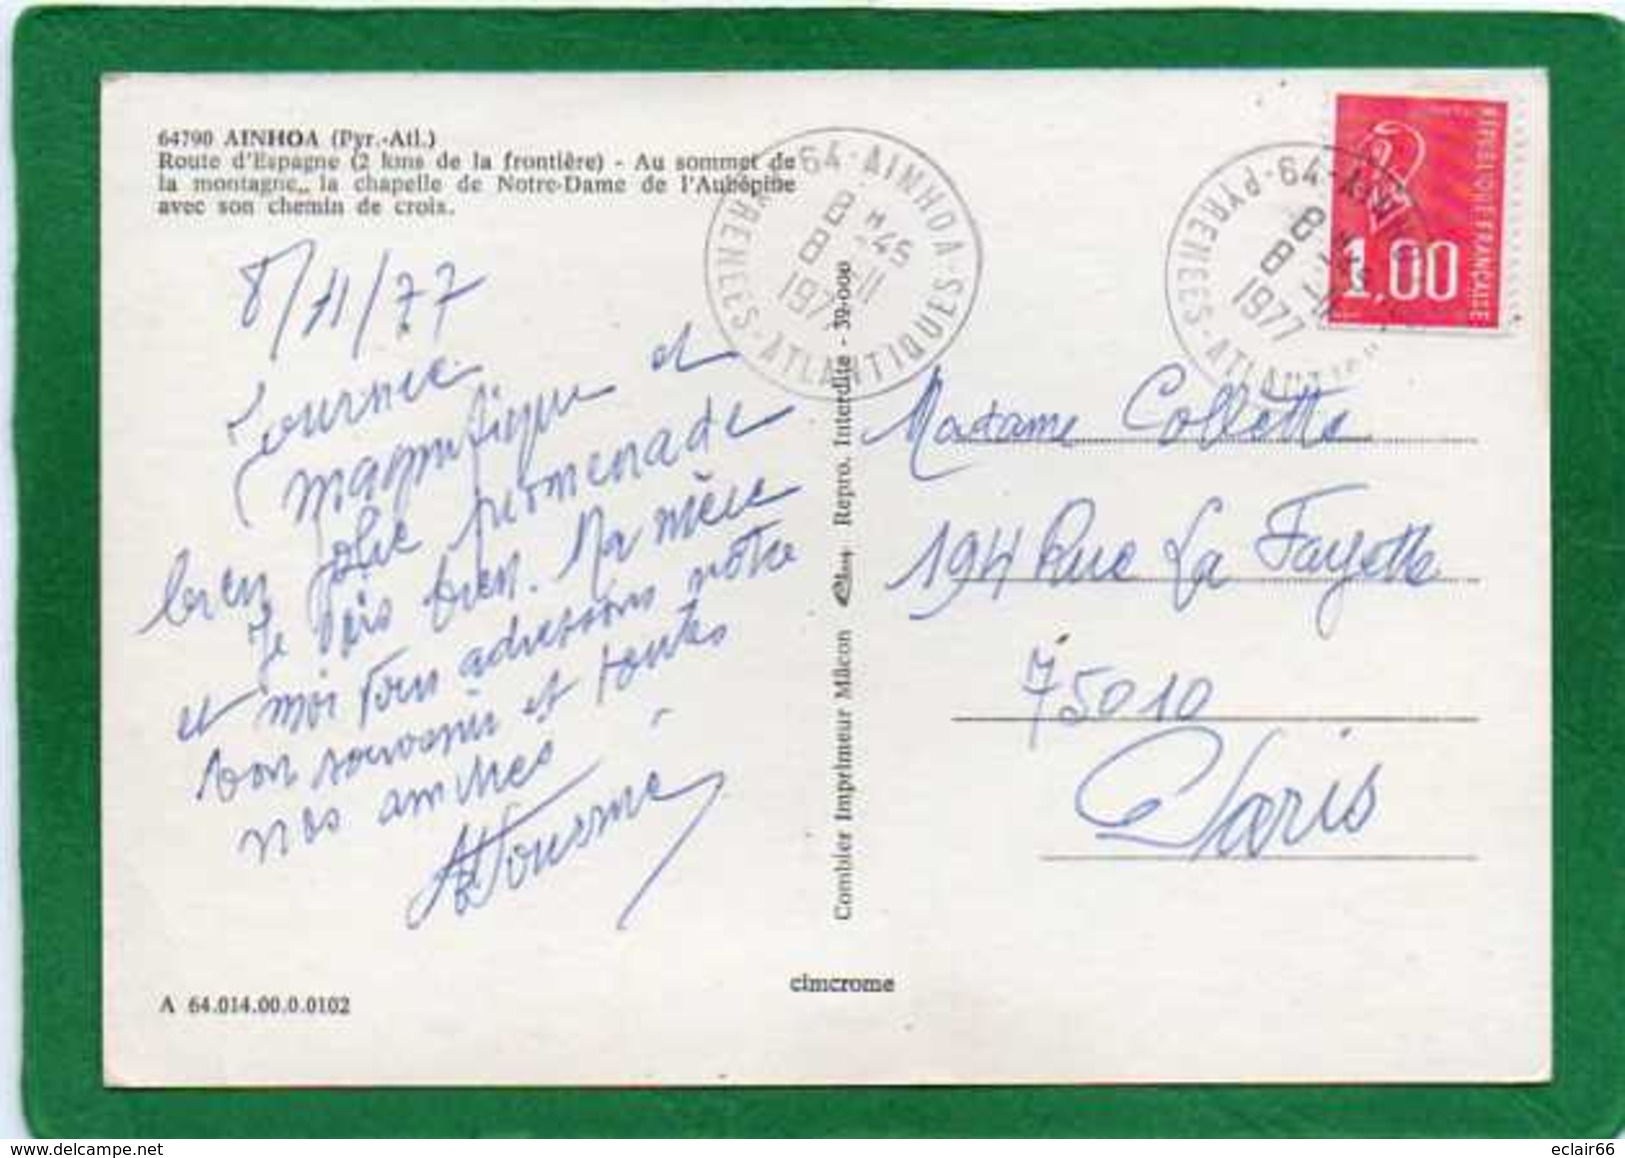 64790 AINHOA (Pyr.-Atl.)
Route d'Espagne (2 kms de la frontière) - Au sommet de
la montagne, la chapelle de Notre-Dame de l'Aubépine
avec son chemin de croix.
8/11/77
Journée
magnifique et
bien jolie promenade
Je vais bien. Ma mère
et moi vous adressons notre
bon souvenir et toutes
nos amitiés
A 64.014.00.0.0102
Combier Imprimeur Mâcon Repro. Interdite - 39-000
cimcrome
64-AINHOA-PYRENEES-ATLANTIQUES
8 H 45
8 -11
1977
64-AINHOA
PYRENEES-ATLANTIQUES
8 H 45
8 -11
1977
REPUBLIQUE FRANÇAISE
1,00
Madame Collette
194 Rue La Fayette
75010
Paris
www.delcampe.net
eclair66